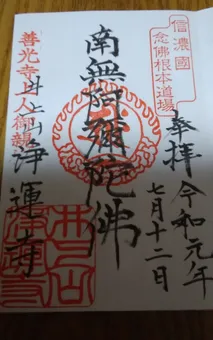 信濃國
念佛根本道場
奉拝 令和元年
七月十二日
南無阿彌陀佛
善光寺上人御親
井上山
浄運寺